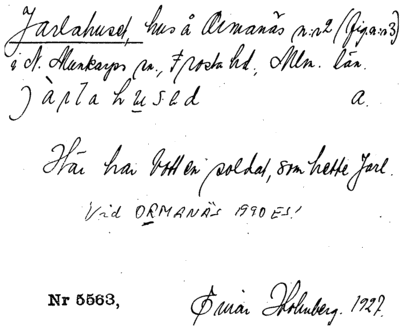 Jarlahuset, hus å Ormanäs n:r 2 (fig. a: n:3)
i N. Munkarps sn, Frosta hd, Mlm. län.
j à ṛ ḷa h u̲ s e d a.
Här har bott en soldat, som hette Jarl.
Vid ORMANÄS 1990 ES!
Nr 5563, Einar Holmberg. 1927.